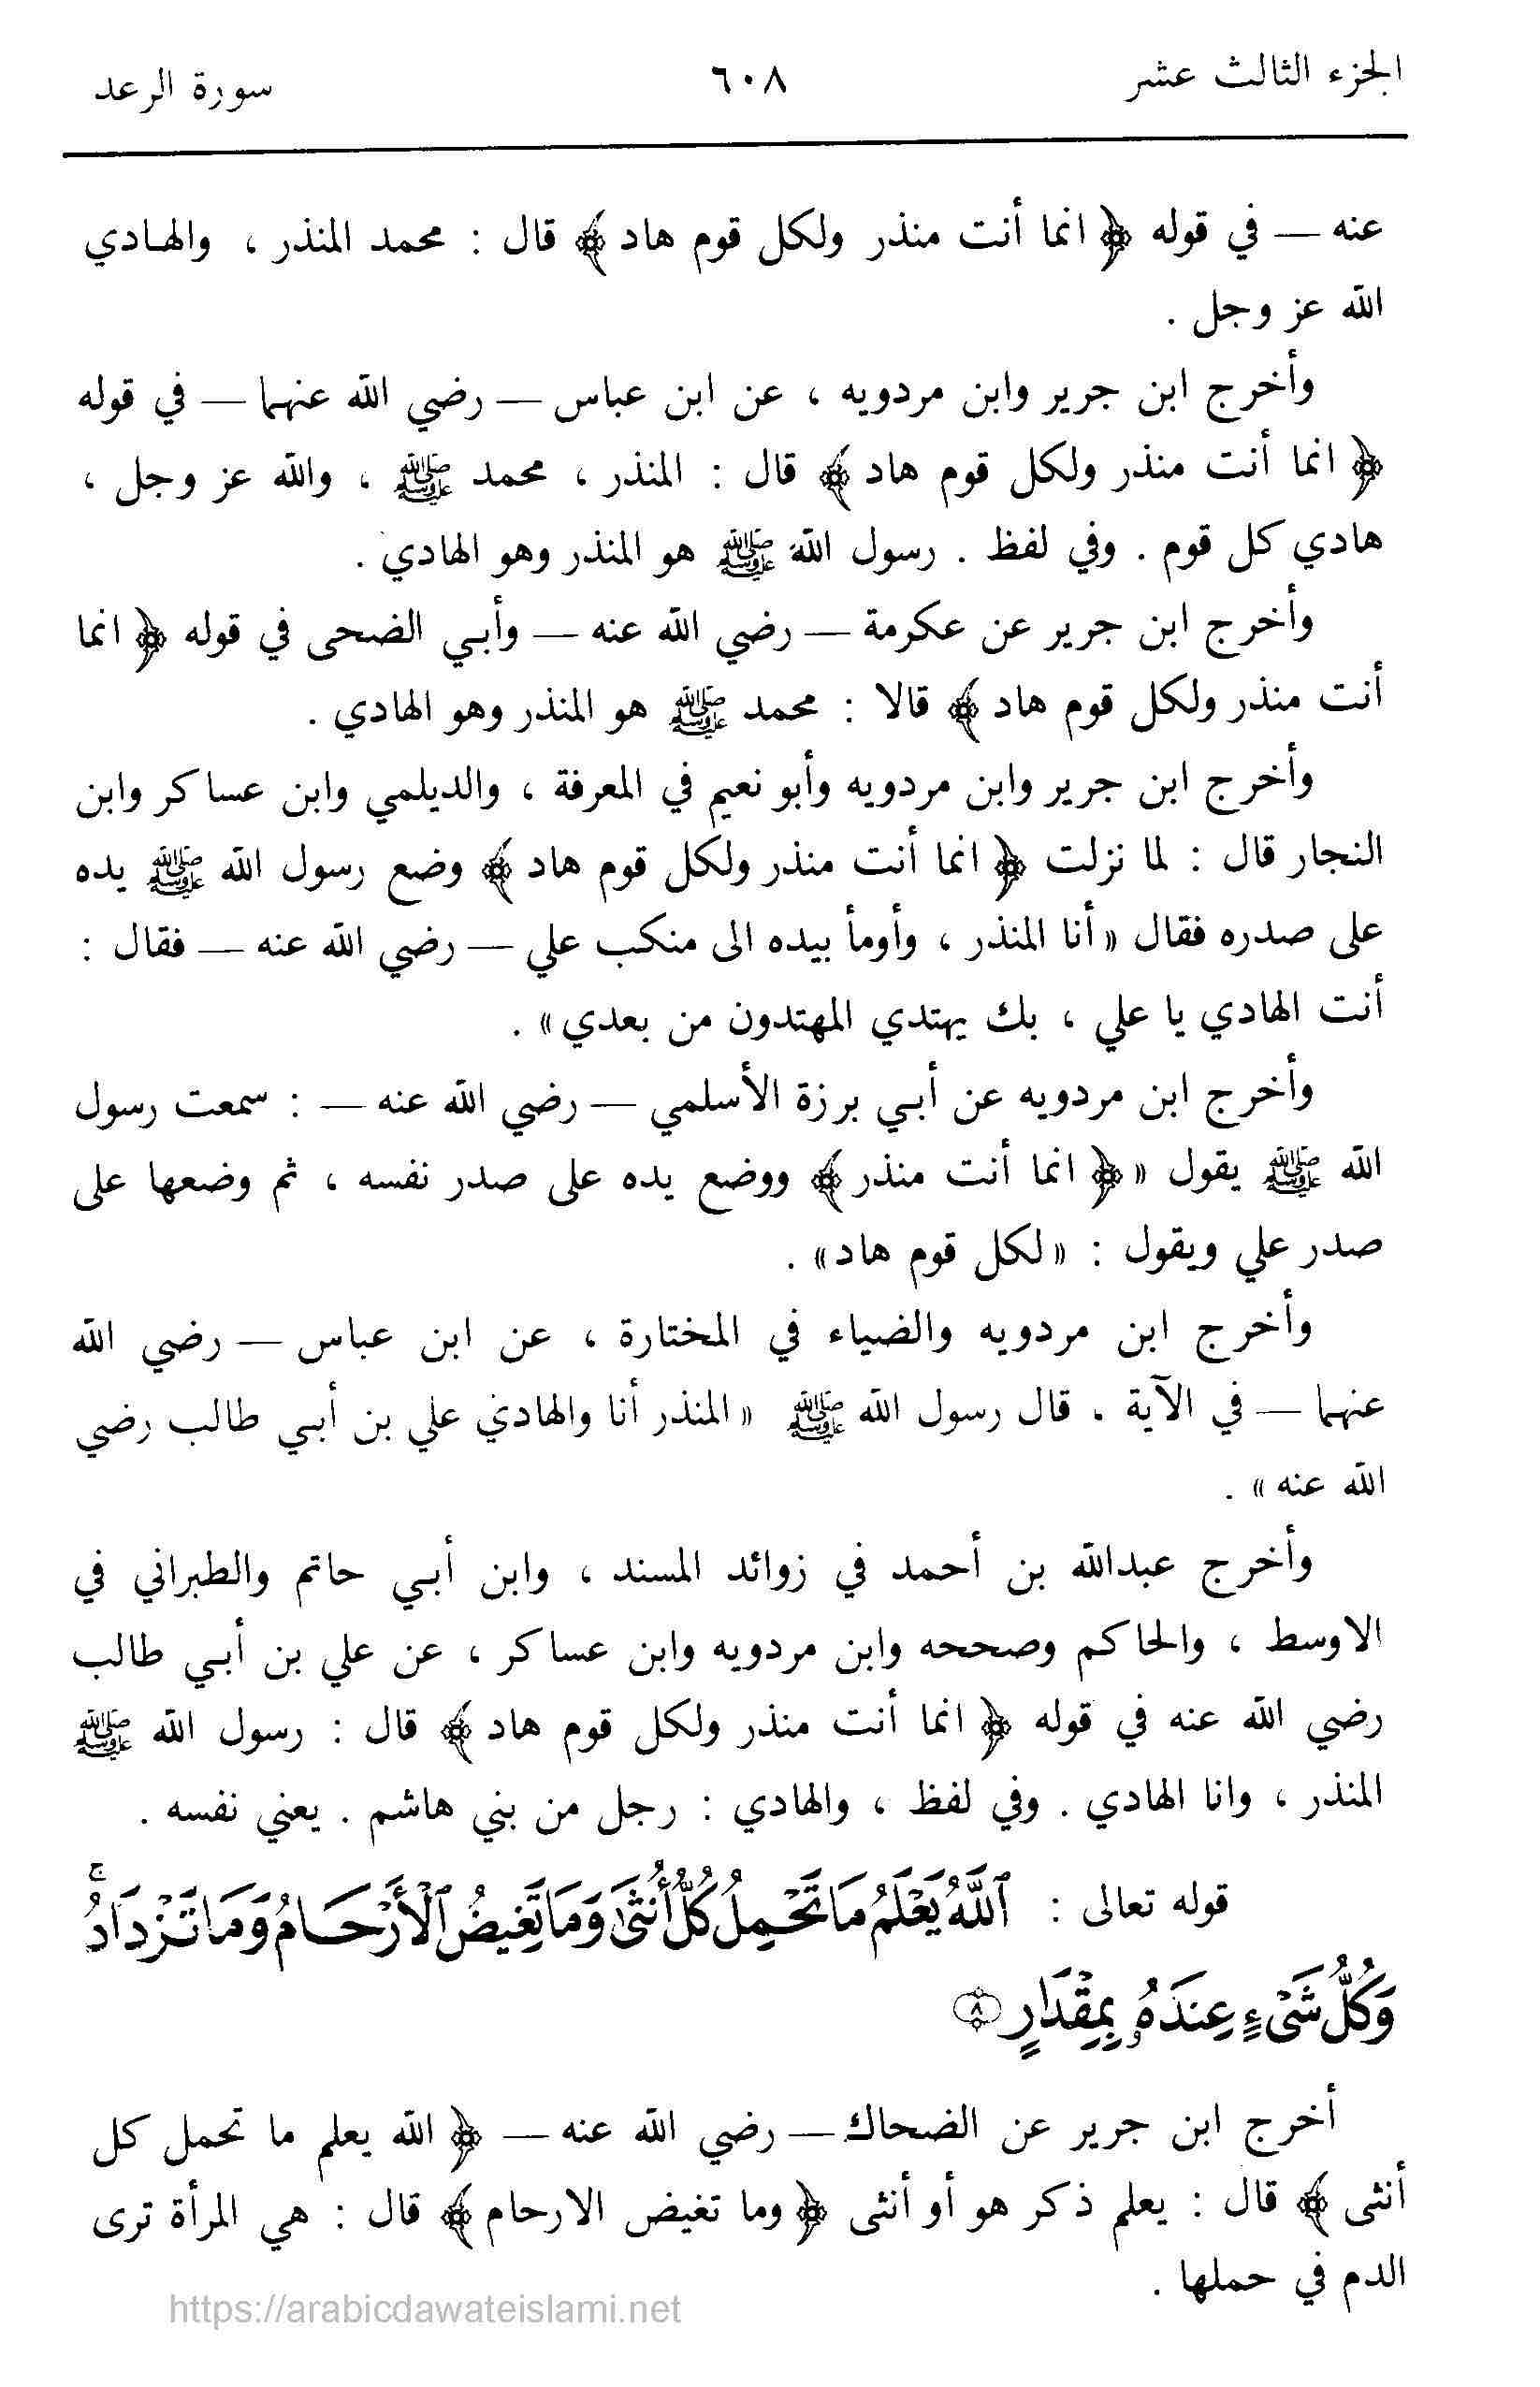 الجزء الثالث عشر
٦٠٨
سورة الرعد
عنه — في قوله ﴿ انما أنت منذر ولكل قوم هاد ﴾ قال : محمد المنذر ، والهادي
الله عز وجل .
وأخرج ابن جرير وابن مردويه ، عن ابن عباس — رضي الله عنهما — في قوله
﴿ انما أنت منذر ولكل قوم هاد ﴾ قال : المنذر ، محمد ﷺ ، والله عز وجل ،
هادي كل قوم . وفي لفظ . رسول الله ﷺ هو المنذر وهو الهادي .
وأخرج ابن جرير عن عكرمة — رضي الله عنه — وأبي الضحى في قوله ﴿ انما
أنت منذر ولكل قوم هاد ﴾ قالا : محمد ﷺ هو المنذر وهو الهادي .
وأخرج ابن جرير وابن مردويه وأبو نعيم في المعرفة ، والديلمي وابن عساكر وابن
النجار قال : لما نزلت ﴿ انما أنت منذر ولكل قوم هاد ﴾ وضع رسول الله ﷺ يده
على صدره فقال « أنا المنذر ، وأومأ بيده الى منكب علي — رضي الله عنه — فقال :
أنت الهادي يا علي ، بك يهتدي المهتدون من بعدي » .
وأخرج ابن مردويه عن أبي برزة الأسلمي — رضي الله عنه — : سمعت رسول
الله ﷺ يقول « ﴿ انما أنت منذر ﴾ ووضع يده على صدر نفسه ، ثم وضعها على
صدر علي ويقول : « لكل قوم هاد » .
وأخرج ابن مردويه والضياء في المختارة ، عن ابن عباس — رضي الله
عنهما — في الآية . قال رسول الله ﷺ « المنذر أنا والهادي علي بن أبي طالب رضي
الله عنه » .
وأخرج عبدالله بن أحمد في زوائد المسند ، وابن أبي حاتم والطبراني في
الاوسط ، والحاكم وصححه وابن مردويه وابن عساكر ، عن علي بن أبي طالب
رضي الله عنه في قوله ﴿ انما أنت منذر ولكل قوم هاد ﴾ قال : رسول الله ﷺ
المنذر ، وانا الهادي . وفي لفظ ، والهادي : رجل من بني هاشم . يعني نفسه .
قوله تعالى : ٱللَّهُ يَعْلَمُ مَا تَحْمِلُ كُلُّ أُنثَىٰ وَمَا تَغِيضُ ٱلْأَرْحَامُ وَمَا تَزْدَادُ ۚ
وَكُلُّ شَىْءٍ عِندَهُۥ بِمِقْدَارٍ ۝٨
أخرج ابن جرير عن الضحاك — رضي الله عنه — ﴿ الله يعلم ما تحمل كل
أنثى ﴾ قال : يعلم ذكر هو أو أنثى ﴿ وما تغيض الارحام ﴾ قال : هي المرأة ترى
الدم في حملها .
https://arabicdawateislami.net